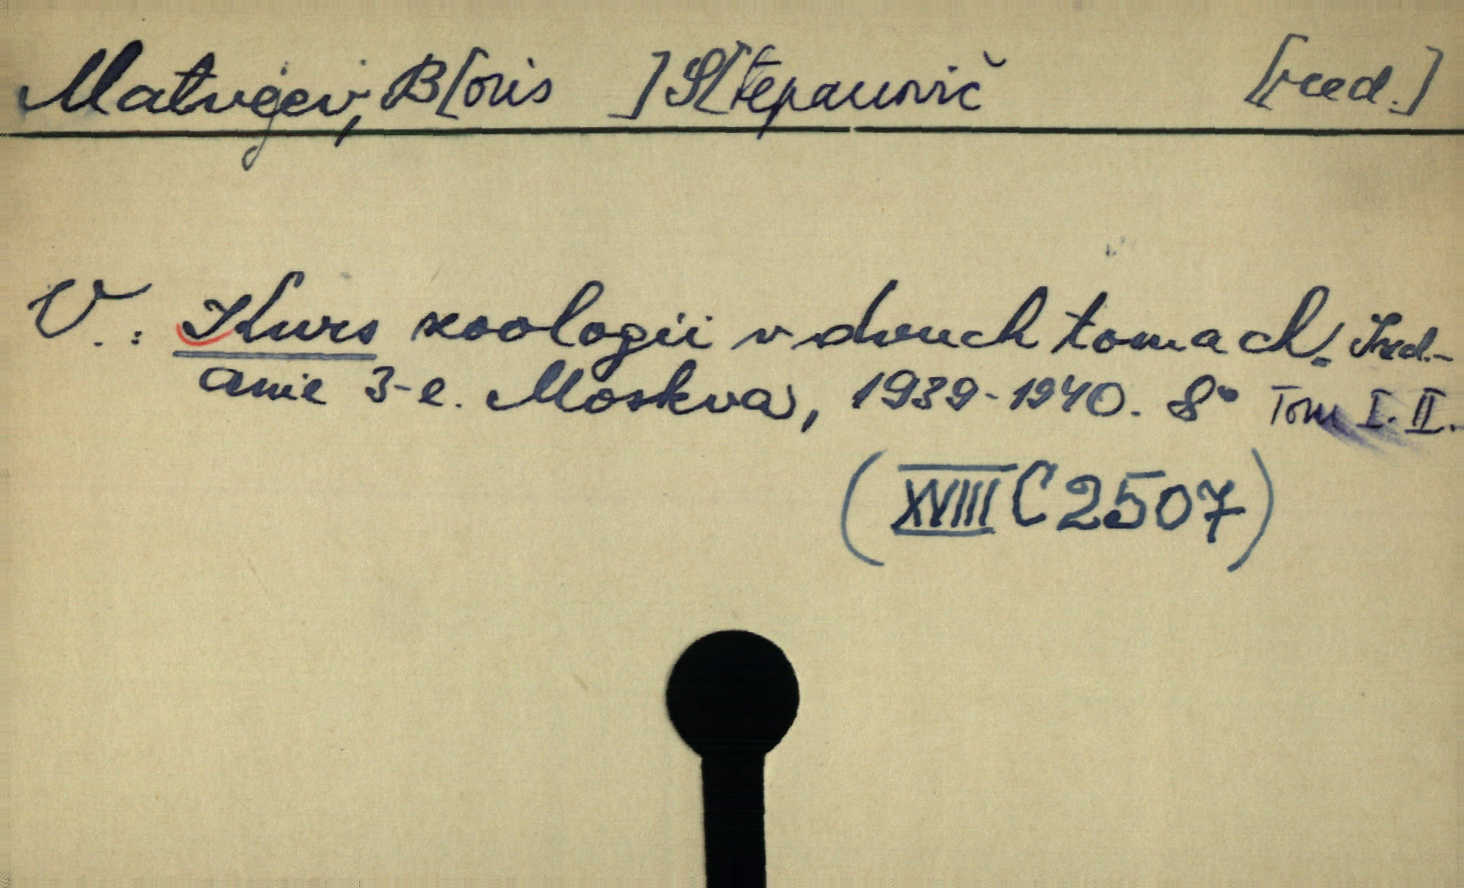 Matvejev, B[oris ] S[tepanovič [red.]
V.: Kurs zoologii v dvuch tomach. Izd-
anie 3-e. Moskva, 1939-1940. 8° Tom I. II.
(XVIII C 2507)